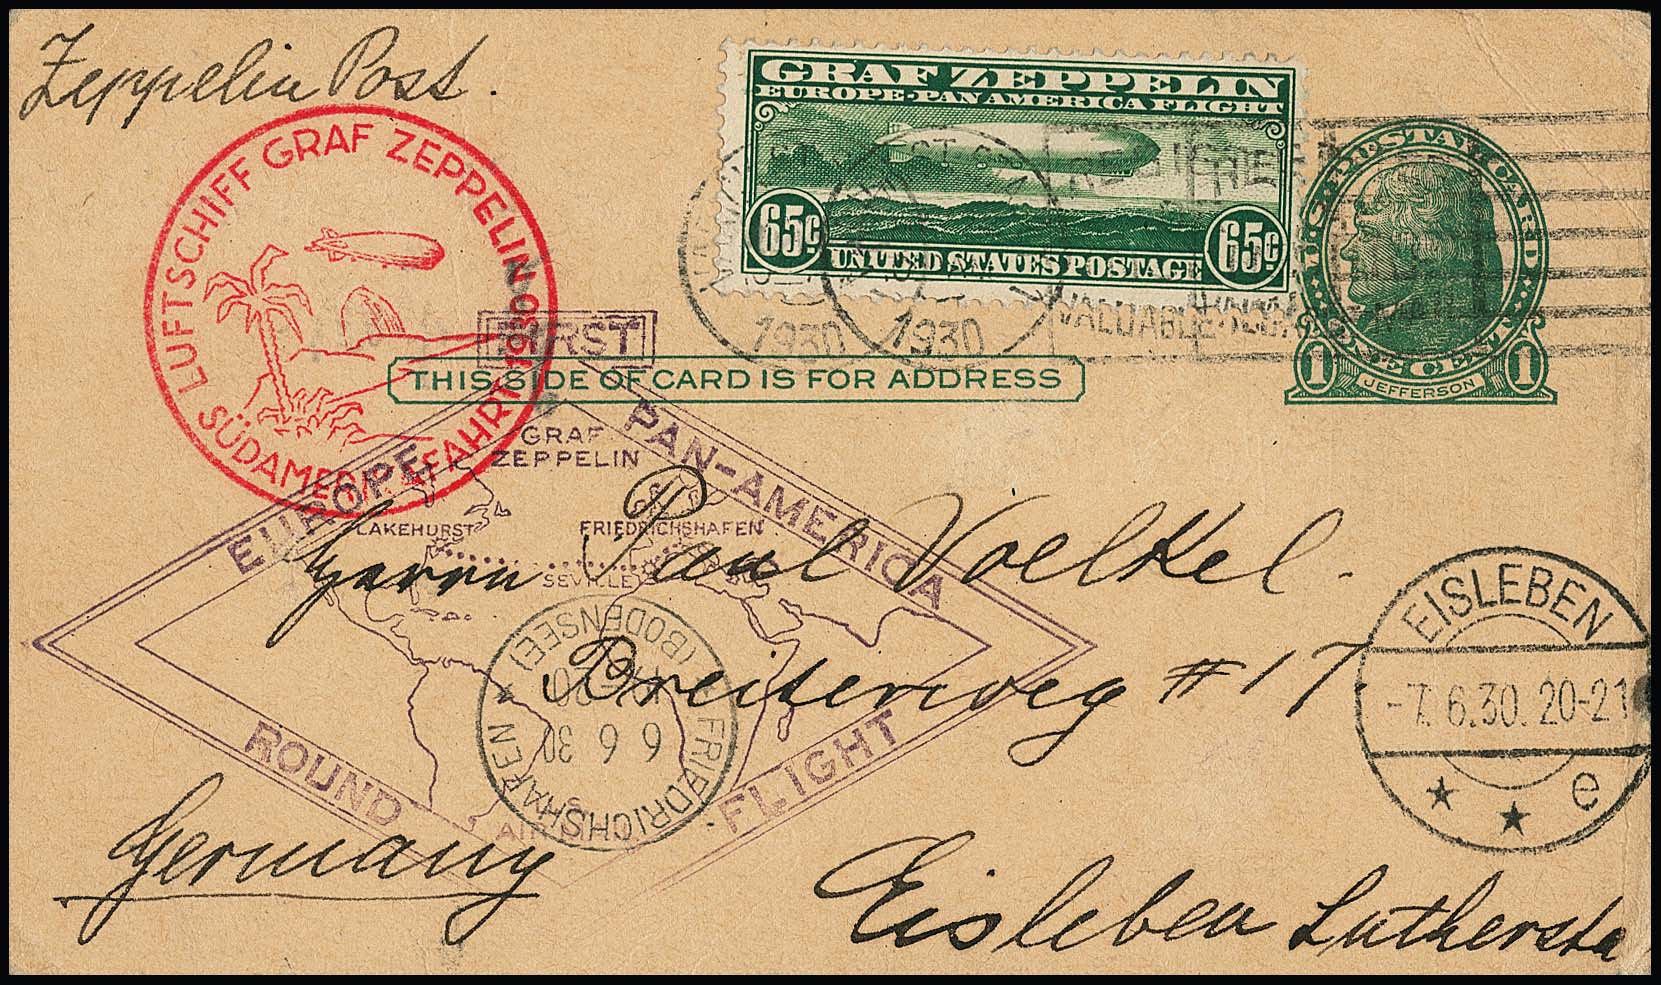 Zeppelin Post.
GRAF ZEPPELIN
EUROPE-PAN AMERICA FLIGHT
65¢ 65¢
UNITED STATES POSTAGE
U.S. POSTAL CARD
JEFFERSON
1 ONE CENT 1
1930 1930
VALUABLE
LUFTSCHIFF GRAF ZEPPELIN
SÜDAMERIKAFAHRT 1930
THIS SIDE OF CARD IS FOR ADDRESS
FIRST
EUROPE PAN-AMERICA
GRAF
ZEPPELIN
LAKEHURST FRIEDRICHSHAFEN
SEVILLE
ROUND FLIGHT
AIR
Herrn Paul Voelkel.
Breiterweg # 17
Eisleben Luthersta
Germany
FRIEDRICHSHAFEN
(BODENSEE)
6 6 30
EISLEBEN
-7.6.30. 20-21
★ ★ e